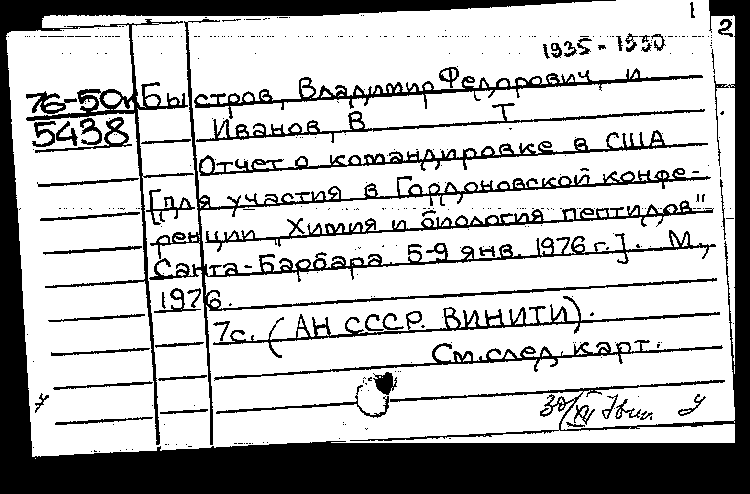 1
2
1935-1990
76-50к Быстров, Владимир Федорович, и
5438 Иванов, В Т
Отчет о командировке в США
[для участия в Гордоновской конфе-
ренции „Химия и биология пептидов"
Санта-Барбара. 5-9 янв. 1976 г.]. М.,
1976.
7с. (АН СССР. ВИНИТИ).
См. след. карт.
30/XII